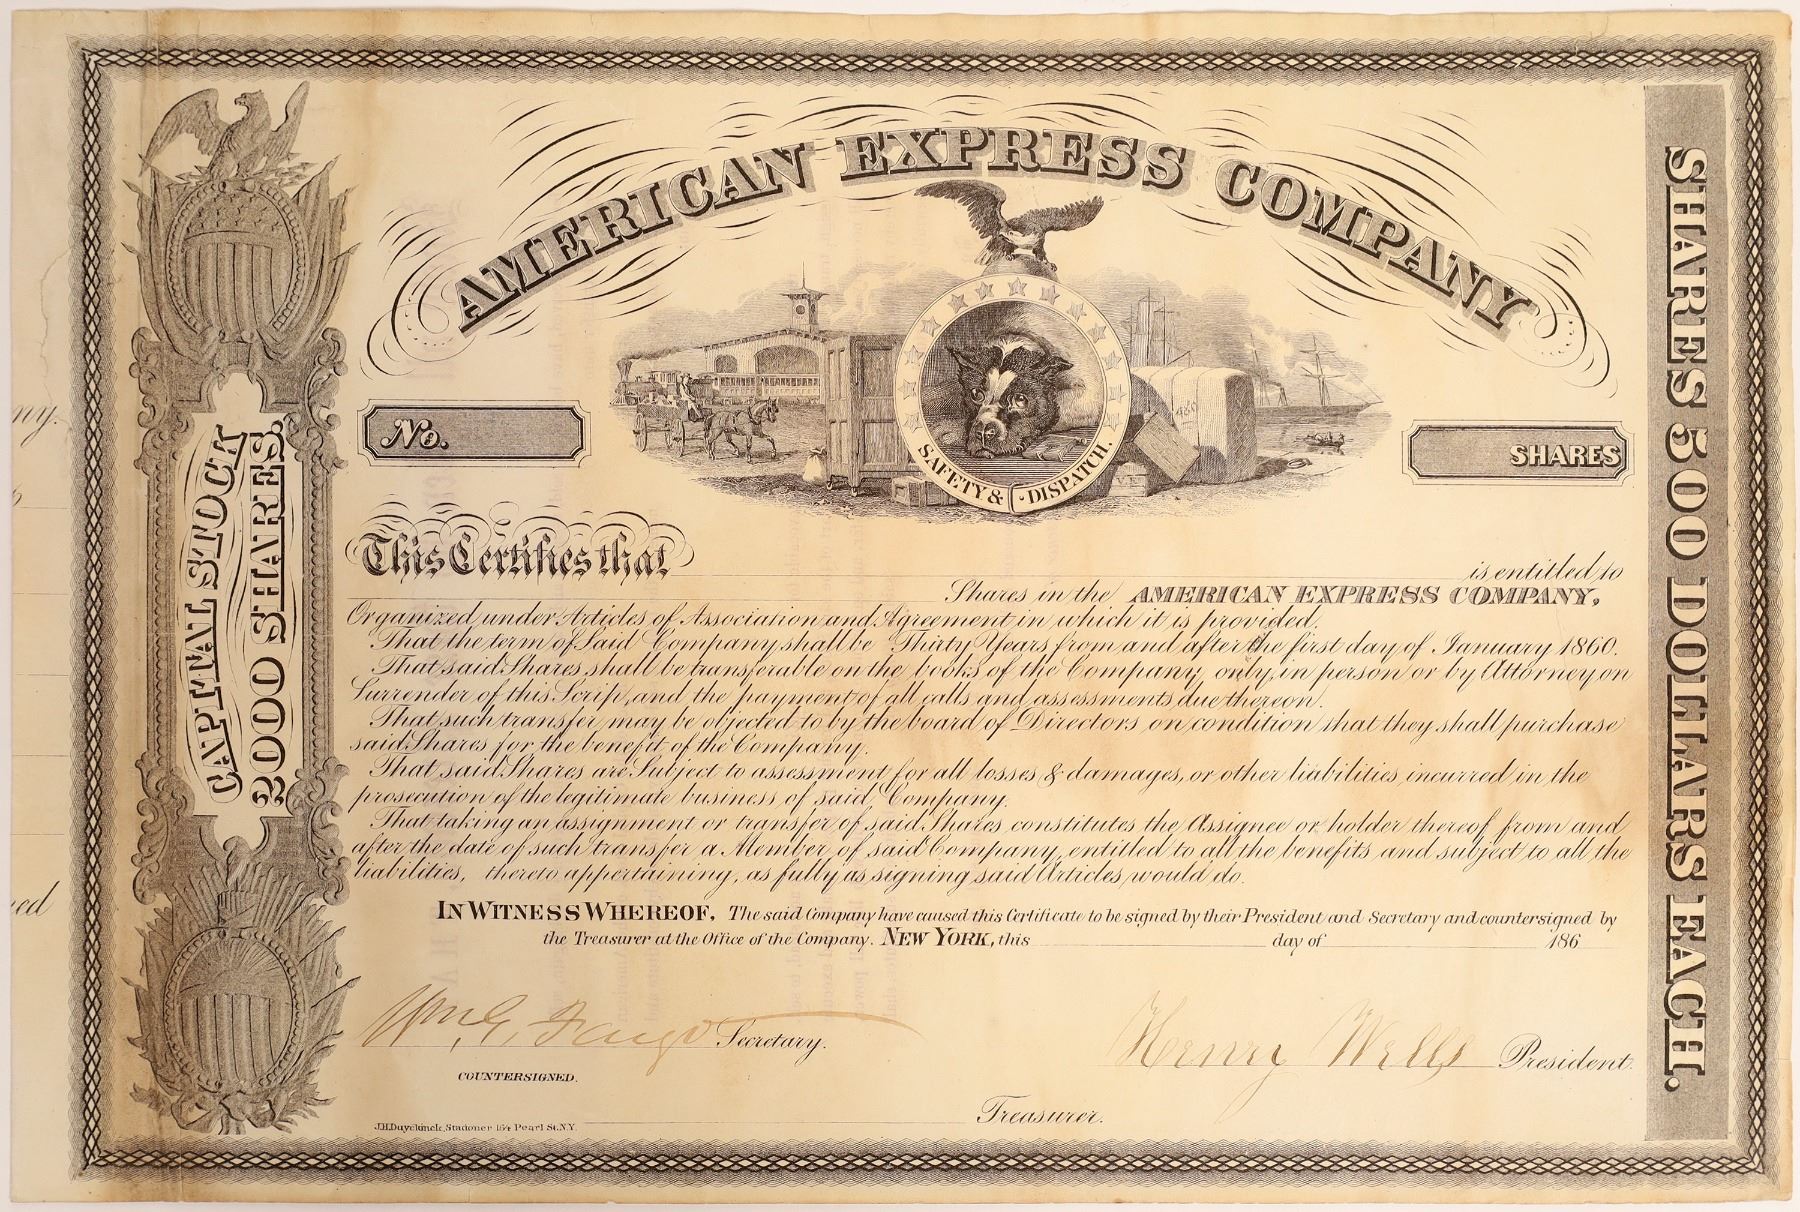 AMERICAN EXPRESS COMPANY
No.
SHARES
SAFETY & DISPATCH.
CAPITAL STOCK
2000 SHARES.
SHARES 500 DOLLARS EACH.
This Certifies that is entitled to
Shares in the AMERICAN EXPRESS COMPANY,
Organized under Articles of Association and Agreement in which it is provided.
That the term of Said Company shall be Thirty Years from and after the first day of January 1860.
That said Shares shall be transferable on the books of the Company only in person or by Attorney on
Surrender of this Scrip, and the payment of all calls and assessments due thereon.
That such transfer may be objected to by the board of Directors on condition that they shall purchase
said Shares for the benefit of the Company.
That said Shares are Subject to assessment for all losses & damages, or other liabilities incurred in the
prosecution of the legitimate business of said Company.
That taking an assignment or transfer of said Shares constitutes the Assignee or holder thereof from and
after the date of such transfer a Member of said Company, entitled to all the benefits and subject to all the
liabilities, thereto appertaining, as fully as signing said Articles would do.
IN WITNESS WHEREOF, The said Company have caused this Certificate to be signed by their President and Secretary and countersigned by
the Treasurer at the Office of the Company. NEW YORK, this day of 186
Wm G. Fargo Secretary.
Henry Wells President.
COUNTERSIGNED.
Treasurer.
J.H. Duyckinck, Stationer 164 Pearl St. N.Y.
ny.